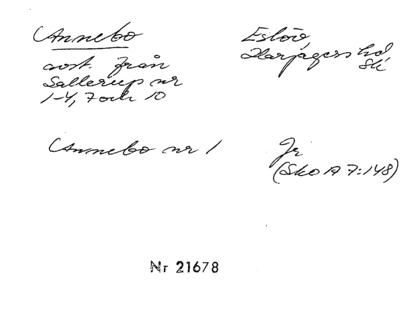 Annebo
Eslöv
Harjagers hd
Sk
avst. från
Sallerup nr
1-4, 7 och 10
Annebo nr 1
Jr
(Sko A 7:148)
Nr 21678